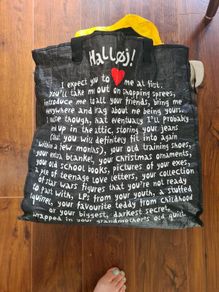 Halløj!
I expect you to me at first.
You'll take me out on shopping sprees,
introduce me to all your friends, bring me
everywhere and rag about me being yours.
I know though, that eventually I'll probably
end up in the attic, storing your jeans
(that you will definitely fit into again
within a few months), your old training shoes,
your extra blanket, your Christmas ornaments,
your old school books, pictures of your exes,
a pile of teenage love letters, your collection
of star wars figures that you're not ready
to part with, LPs from your youth, a stuffed
squirrel, your favourite teddy from childhood
or your biggest, darkest secret,
wrapped in your grandmothers old quilt